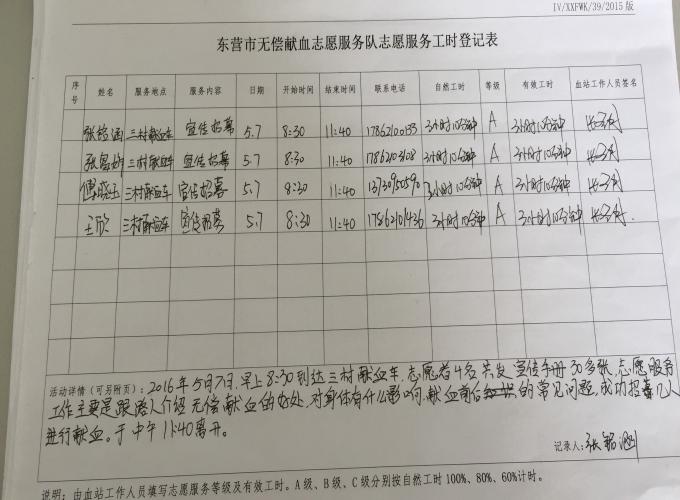 IV/XXFWK/39/2015版
东营市无偿献血志愿服务队志愿服务工时登记表
序号 姓名 服务地点 服务内容 日期 开始时间 结束时间 联系电话 自然工时 等级 有效工时 血站工作人员签名
三村献血车 宣传招募 5.7 8:30 11:40 17862100133 3小时10分钟 A 3小时10分钟
三村献血车 宣传招募 5.7 8:30 11:40 3小时10分钟 A 3小时10分钟
傅晓玉 三村献血车 宣传招募 5.7 8:30 11:40 3小时10分钟 A 3小时10分钟
王欣 三村献血车 宣传招募 5.7 8:30 11:40 17862101436 3小时10分钟 A 3小时10分钟
活动详情(可另附页):2016年5月7日,早上8:30到达三村献血车,志愿者4名,共发宣传手册30多张,志愿服务
工作主要是跟路人介绍无偿献血的好处,对身体有什么影响,献血前后的常见问题,成功招募几人
进行献血。于中午11:40离开。
记录人:张铭涵
说明:由血站工作人员填写志愿服务等级及有效工时。A级、B级、C级分别按自然工时100%、80%、60%计时。